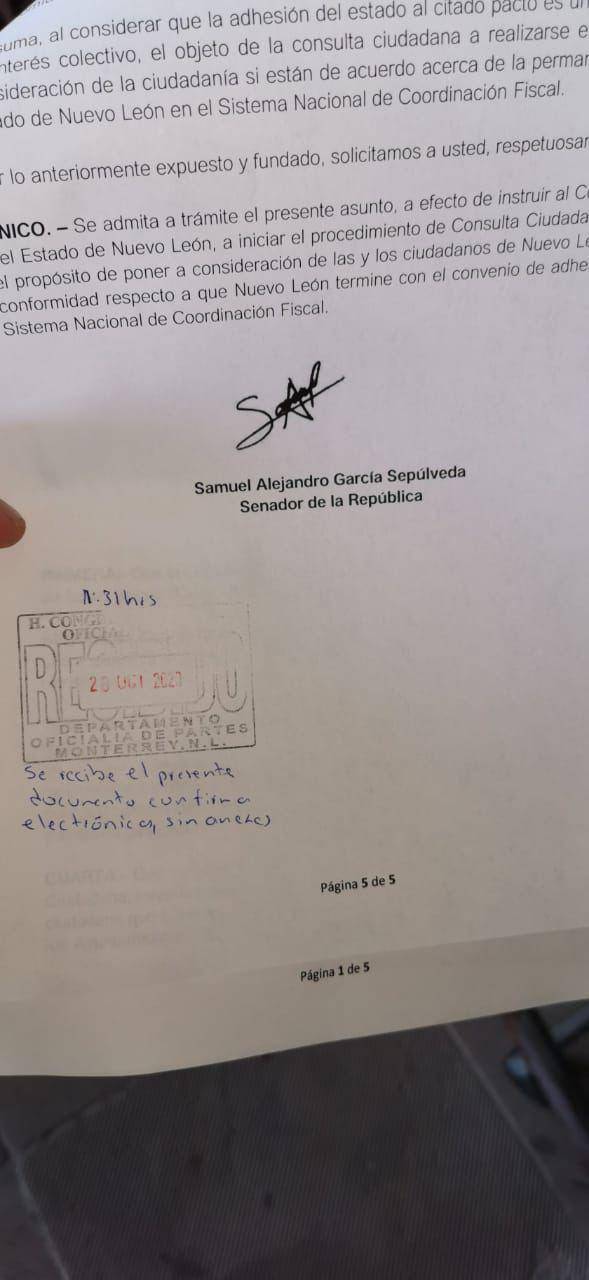 suma, al considerar que la adhesión del estado al citado pacto es un
nterés colectivo, el objeto de la consulta ciudadana a realizarse e
sideración de la ciudadanía si están de acuerdo acerca de la permar
ado de Nuevo León en el Sistema Nacional de Coordinación Fiscal.
r lo anteriormente expuesto y fundado, solicitamos a usted, respetuosar
NICO. – Se admita a trámite el presente asunto, a efecto de instruir al C
el Estado de Nuevo León, a iniciar el procedimiento de Consulta Ciudada
el propósito de poner a consideración de las y los ciudadanos de Nuevo Le
conformidad respecto a que Nuevo León termine con el convenio de adhe
Sistema Nacional de Coordinación Fiscal.
Samuel Alejandro García Sepúlveda
Senador de la República
31 hrs
H. CONG
OFICIA
OCT
DEPARTAMENTO
OFICIALIA DE PARTES
MONTERREY, N.L.
Se recibe el presente
documento con firma
electrónica, sin anexos
Página 5 de 5
Página 1 de 5